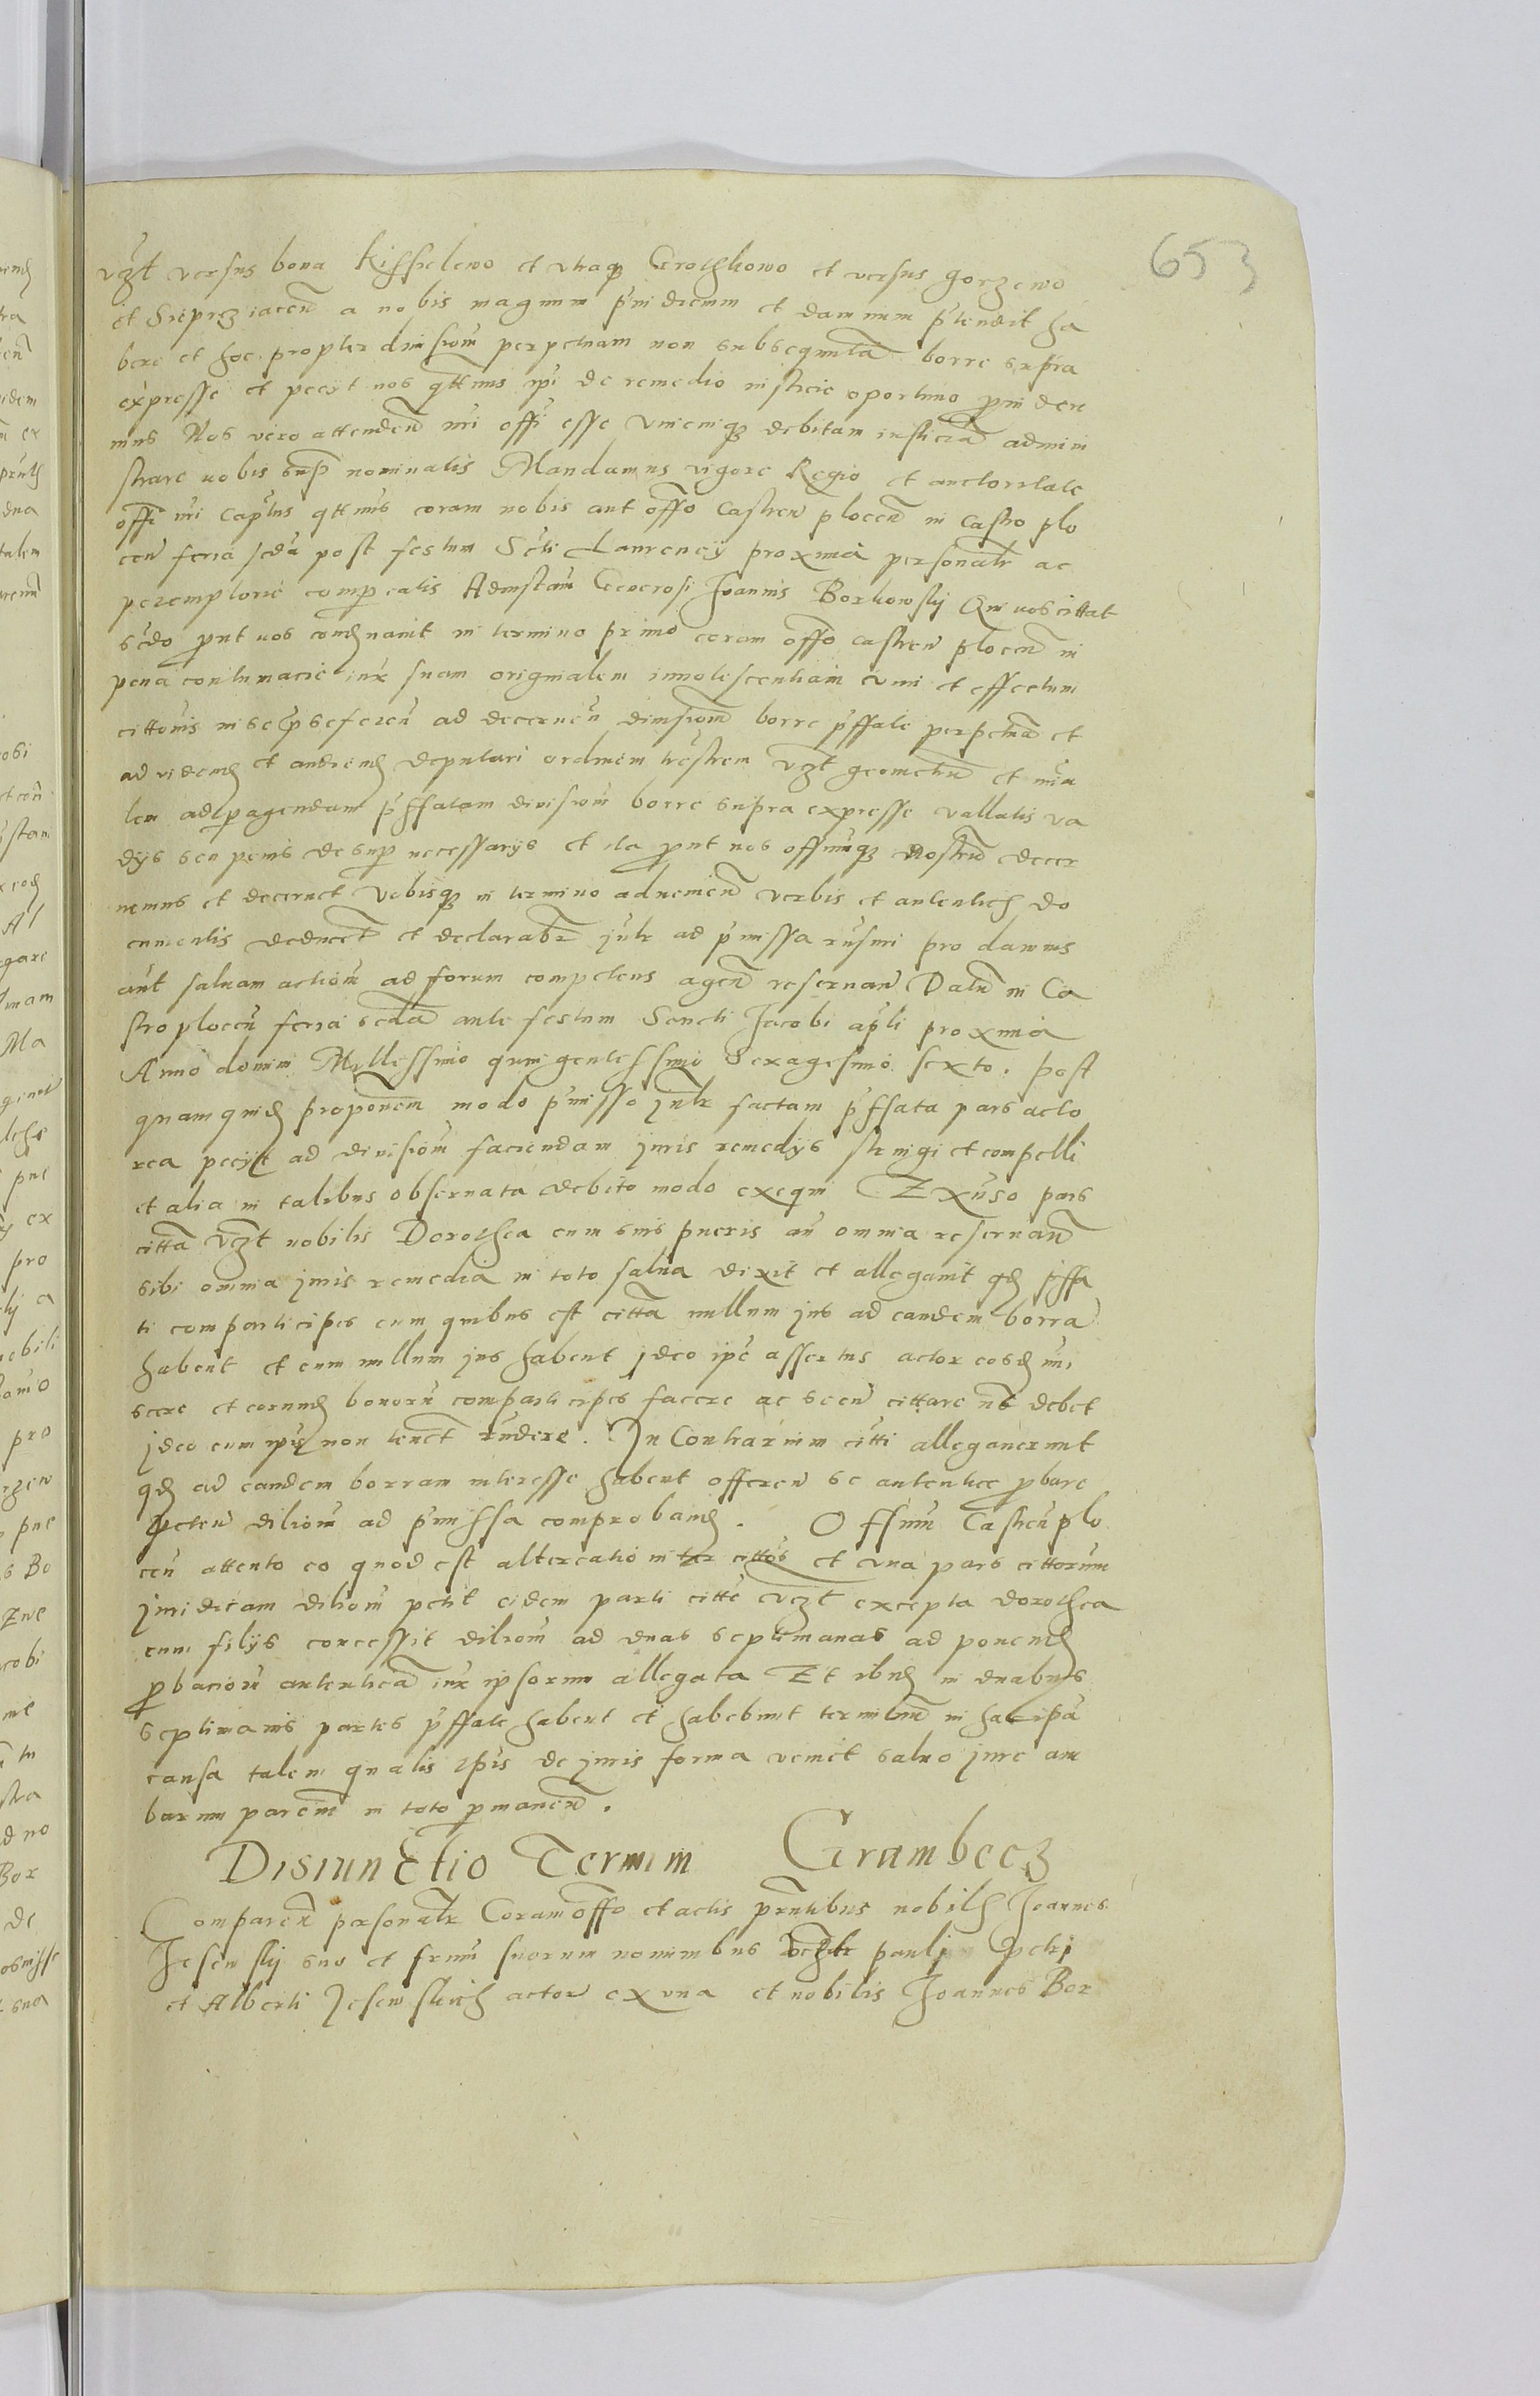 653
vʒt versus bona Kissielewo et utraqʒ Grochowo et versus gorzewo
et Srzeprz iacen̄ a nobis magnum p̄iudicium et damnum p̄tendit ha
bere et hoc propter diuisioni perpetuam non subsequutā borre supra
expresse et peciit nos q̄ttinus ip̄i de remedio iusticie oportuno ꝓuidere
mus Nos vero attenden̄ n̄ri offi esse Unicuiqʒ debitam iusticiā admini
strare uobis sup̄ nominatis Mandamus vigore Regio et auctoritate
offi n̄ri Cap̄tus q̄ttinus coram nobis aut offo Castren̄ plocen̄ in Castro plo
cen̄ feria scd̄a post festum Scti Laurencij proxima personalr̄ ac
peremptorie compareatis Ad instan̄ Generosi Joannis Borkowskij Qui uos cittat
scd̄o ꝓut uos condemnauit in termino primo coram offo castren̄ plocen̄ in
pena contumacie iux̄ suam originalem innotescentiam cum et effectum
cittōnis in se ip̄se feren̄ ad decernen̄ diuisionē borre p̄ffate perpetuā et
ad videnđ et audienđ deputari ordinem trēstrem vʒt geometrū et
lem ad peragendam p̄ffatam divisionē borre supra expresse vallatis va
dijs seu penis desup̄ necessarijs et ita ꝓut nos offiumqʒ nostrū decer
nemus et decernet Vobisqʒ in termino aduenien̄ verbis et autenticis do
cumentis deducet̄ et declarabr̄ jūtr ad p̄missa rn̄suri pro damnis
aūt saluam actionē ad forum competens agen̄ reseruan̄ Datū in Ca
stro plocen̄ feria scd̄a ante festum Sancti Jacobi ap̄li proxima
Anno domini Millessimo quingentessimo Sexagesimo sexto. post
quam quidē proponem modo p̄misso jūtr factam p̄ffata pars acto
rea peciit ad divisionē faciendam juris remedijs stringi et compelli
et alia in talibus obseruata debito modo exequi Exuso pars
citta vʒt nobilis Dorothea cum suis pueris an̄ omnia reseruan̄
sibi omnia juris remedia in toto salua dixit et allegauit qđ p̄ffa
ti comparticipes cum quibus est citta nullum jus ad eandem borra
habent et cum nullum jus habent jdeo ip̄e assertus actor eosđ
scere et eorumđ bonorū comparticipes facere ac secū cittare nō debet
jdeo cum ip̄is non tenet rn̄dere. In Contrarium citti allegauerunt
qđ ad eandem borram interesse habent offeren̄ se autentice ꝓbare
peten̄ dilionē ad p̄missa comprobanđ. Offium Castren̄ plo
cen̄ attento eo quod est altercatio inter cittos et una pars cittorum
juridicam dilionē petit eidem parti citte vʒt excepta dorothea
cum filijs concessit dilionē ad duas septimanas ad ponenđ
ꝓbacionē autenticā iux̄ ipsorum allegata Et ibidē in duabus
septimanis partes p̄ffate habent et habebunt terminū in hac ip̄a
causa talem qualis ip̄is de juris forma veniet saluo jure am
barum parcium in toto ꝓmanen̄.
Disiunctio Termini Grambecz
Comparen̄ personalr̄ Coram offo et actis pn̄tibus nobilis Joannes
Jesewskij suo et frūm suorum nominibus vʒt pauli petri
et Alberti Jesewskich actor ex una et nobilis Joannes Bor